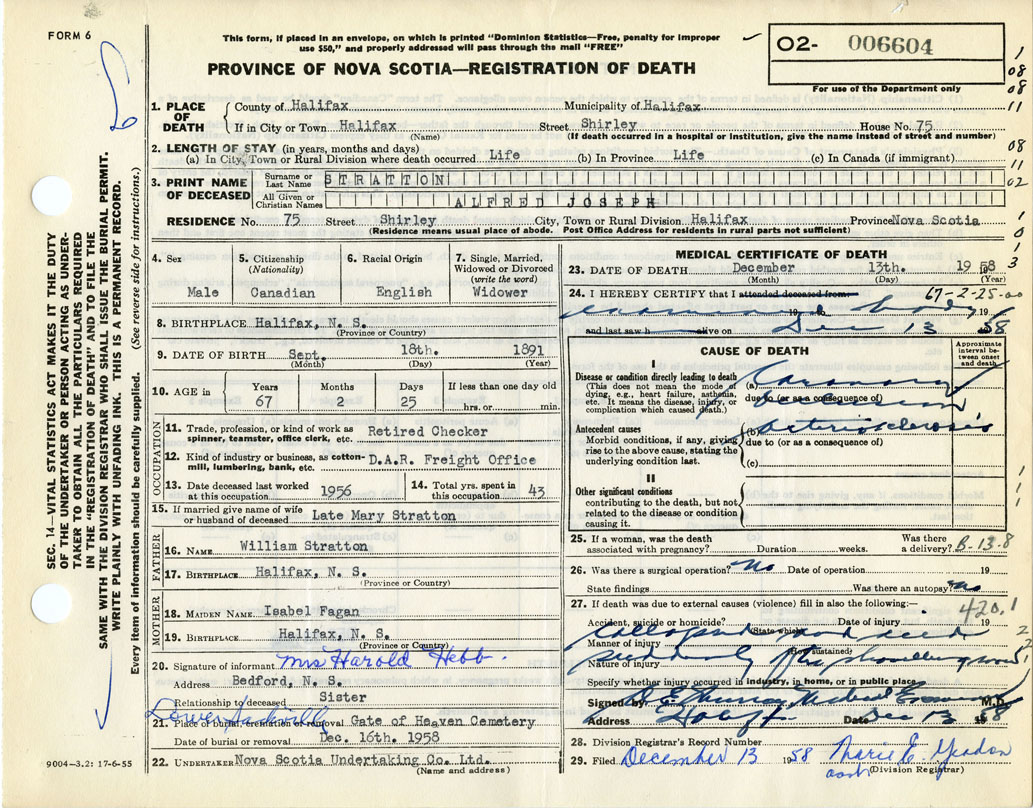 FORM 6
This form, if placed in an envelope, on which is printed "Dominion Statistics—Free, penalty for improper
use $50," and properly addressed will pass through the mail "FREE"
PROVINCE OF NOVA SCOTIA—REGISTRATION OF DEATH
O2- 006604
For use of the Department only
1
08
08
11
08
11
02
1
0
1
3
SEC. 14—VITAL STATISTICS ACT MAKES IT THE DUTY
OF THE UNDERTAKER OR PERSON ACTING AS UNDER-
TAKER TO OBTAIN ALL THE PARTICULARS REQUIRED
IN THE "REGISTRATION OF DEATH" AND TO FILE THE
SAME WITH THE DIVISION REGISTRAR WHO SHALL ISSUE THE BURIAL PERMIT.
WRITE PLAINLY WITH UNFADING INK. THIS IS A PERMANENT RECORD.
Every item of information should be carefully supplied. (See reverse side for instructions.)
1. PLACE OF DEATH
County of Halifax Municipality of Halifax
If in City or Town Halifax Street Shirley House No. 75
(Name) (If death occurred in a hospital or institution, give the name instead of street and number)
2. LENGTH OF STAY (in years, months and days)
(a) In City, Town or Rural Division where death occurred Life (b) In Province Life (c) In Canada (if immigrant)
3. PRINT NAME OF DECEASED
Surname or Last Name STRATTON
All Given or Christian Names ALFRED JOSEPH
RESIDENCE No. 75 Street Shirley City, Town or Rural Division Halifax Province Nova Scotia
(Residence means usual place of abode. Post Office Address for residents in rural parts not sufficient)
4. Sex
Male
5. Citizenship
(Nationality)
Canadian
6. Racial Origin
English
7. Single, Married,
Widowed or Divorced
(write the word)
Widower
8. BIRTHPLACE Halifax, N. S.
(Province or Country)
9. DATE OF BIRTH Sept. 18th. 1891
(Month) (Day) (Year)
10. AGE in
Years Months Days If less than one day old
67 2 25 hrs. or min.
OCCUPATION
11. Trade, profession, or kind of work as
spinner, teamster, office clerk, etc. Retired Checker
12. Kind of industry or business, as cotton-
mill, lumbering, bank, etc. D.A.R. Freight Office
13. Date deceased last worked
at this occupation 1956
14. Total yrs. spent in
this occupation 43
15. If married give name of wife
or husband of deceased Late Mary Stratton
FATHER
16. NAME William Stratton
17. BIRTHPLACE Halifax, N. S.
(Province or Country)
MOTHER
18. MAIDEN NAME Isabel Fagan
19. BIRTHPLACE Halifax, N. S.
(Province or Country)
20. Signature of informant Mrs Harold Hebb.
Address Bedford, N. S.
Relationship to deceased Sister
Lower Sackville
21. Place of burial, cremation or removal Gate of Heaven Cemetery
Date of burial or removal Dec. 16th. 1958
22. UNDERTAKER Nova Scotia Undertaking Co. Ltd.
(Name and address)
9004—3.2: 17-6-55
MEDICAL CERTIFICATE OF DEATH
23. DATE OF DEATH December 13th. 1958
(Month) (Day) (Year)
67-2-25-00
24. I HEREBY CERTIFY that I attended deceased from
examined body 19
and last saw h alive on Dec 13 58
CAUSE OF DEATH
Approximate interval between onset and death
I
Disease or condition directly leading to death
(This does not mean the mode of
dying, e.g., heart failure, asthenia,
etc. It means the disease, injury, or
complication which caused death.)
(a) Coronary
due to (or as a consequence of)
occlusion
Antecedent causes
Morbid conditions, if any, giving
rise to the above cause, stating the
underlying condition last.
(b) arteriosclerosis
due to (or as a consequence of)
(c)
II
Other significant conditions
contributing to the death, but not
related to the disease or condition
causing it.
1
1
1
25. If a woman, was the death
associated with pregnancy? Duration weeks. Was there
a delivery? B-13-8
26. Was there a surgical operation? No Date of operation 19
State findings Was there an autopsy? No
27. If death was due to external causes (violence) fill in also the following:—
420.1
Accident, suicide or homicide? Date of injury 19
(State which)
Collapsed and died
Manner of injury
(How sustained)
suddenly after shovelling snow
Nature of injury
Specify whether injury occurred in industry, in home, or in public place
Signed by Medical Examiner M.D.
Address Date Dec 13 58
28. Division Registrar's Record Number
29. Filed December 13 1958 Marie E.
(Division Registrar)